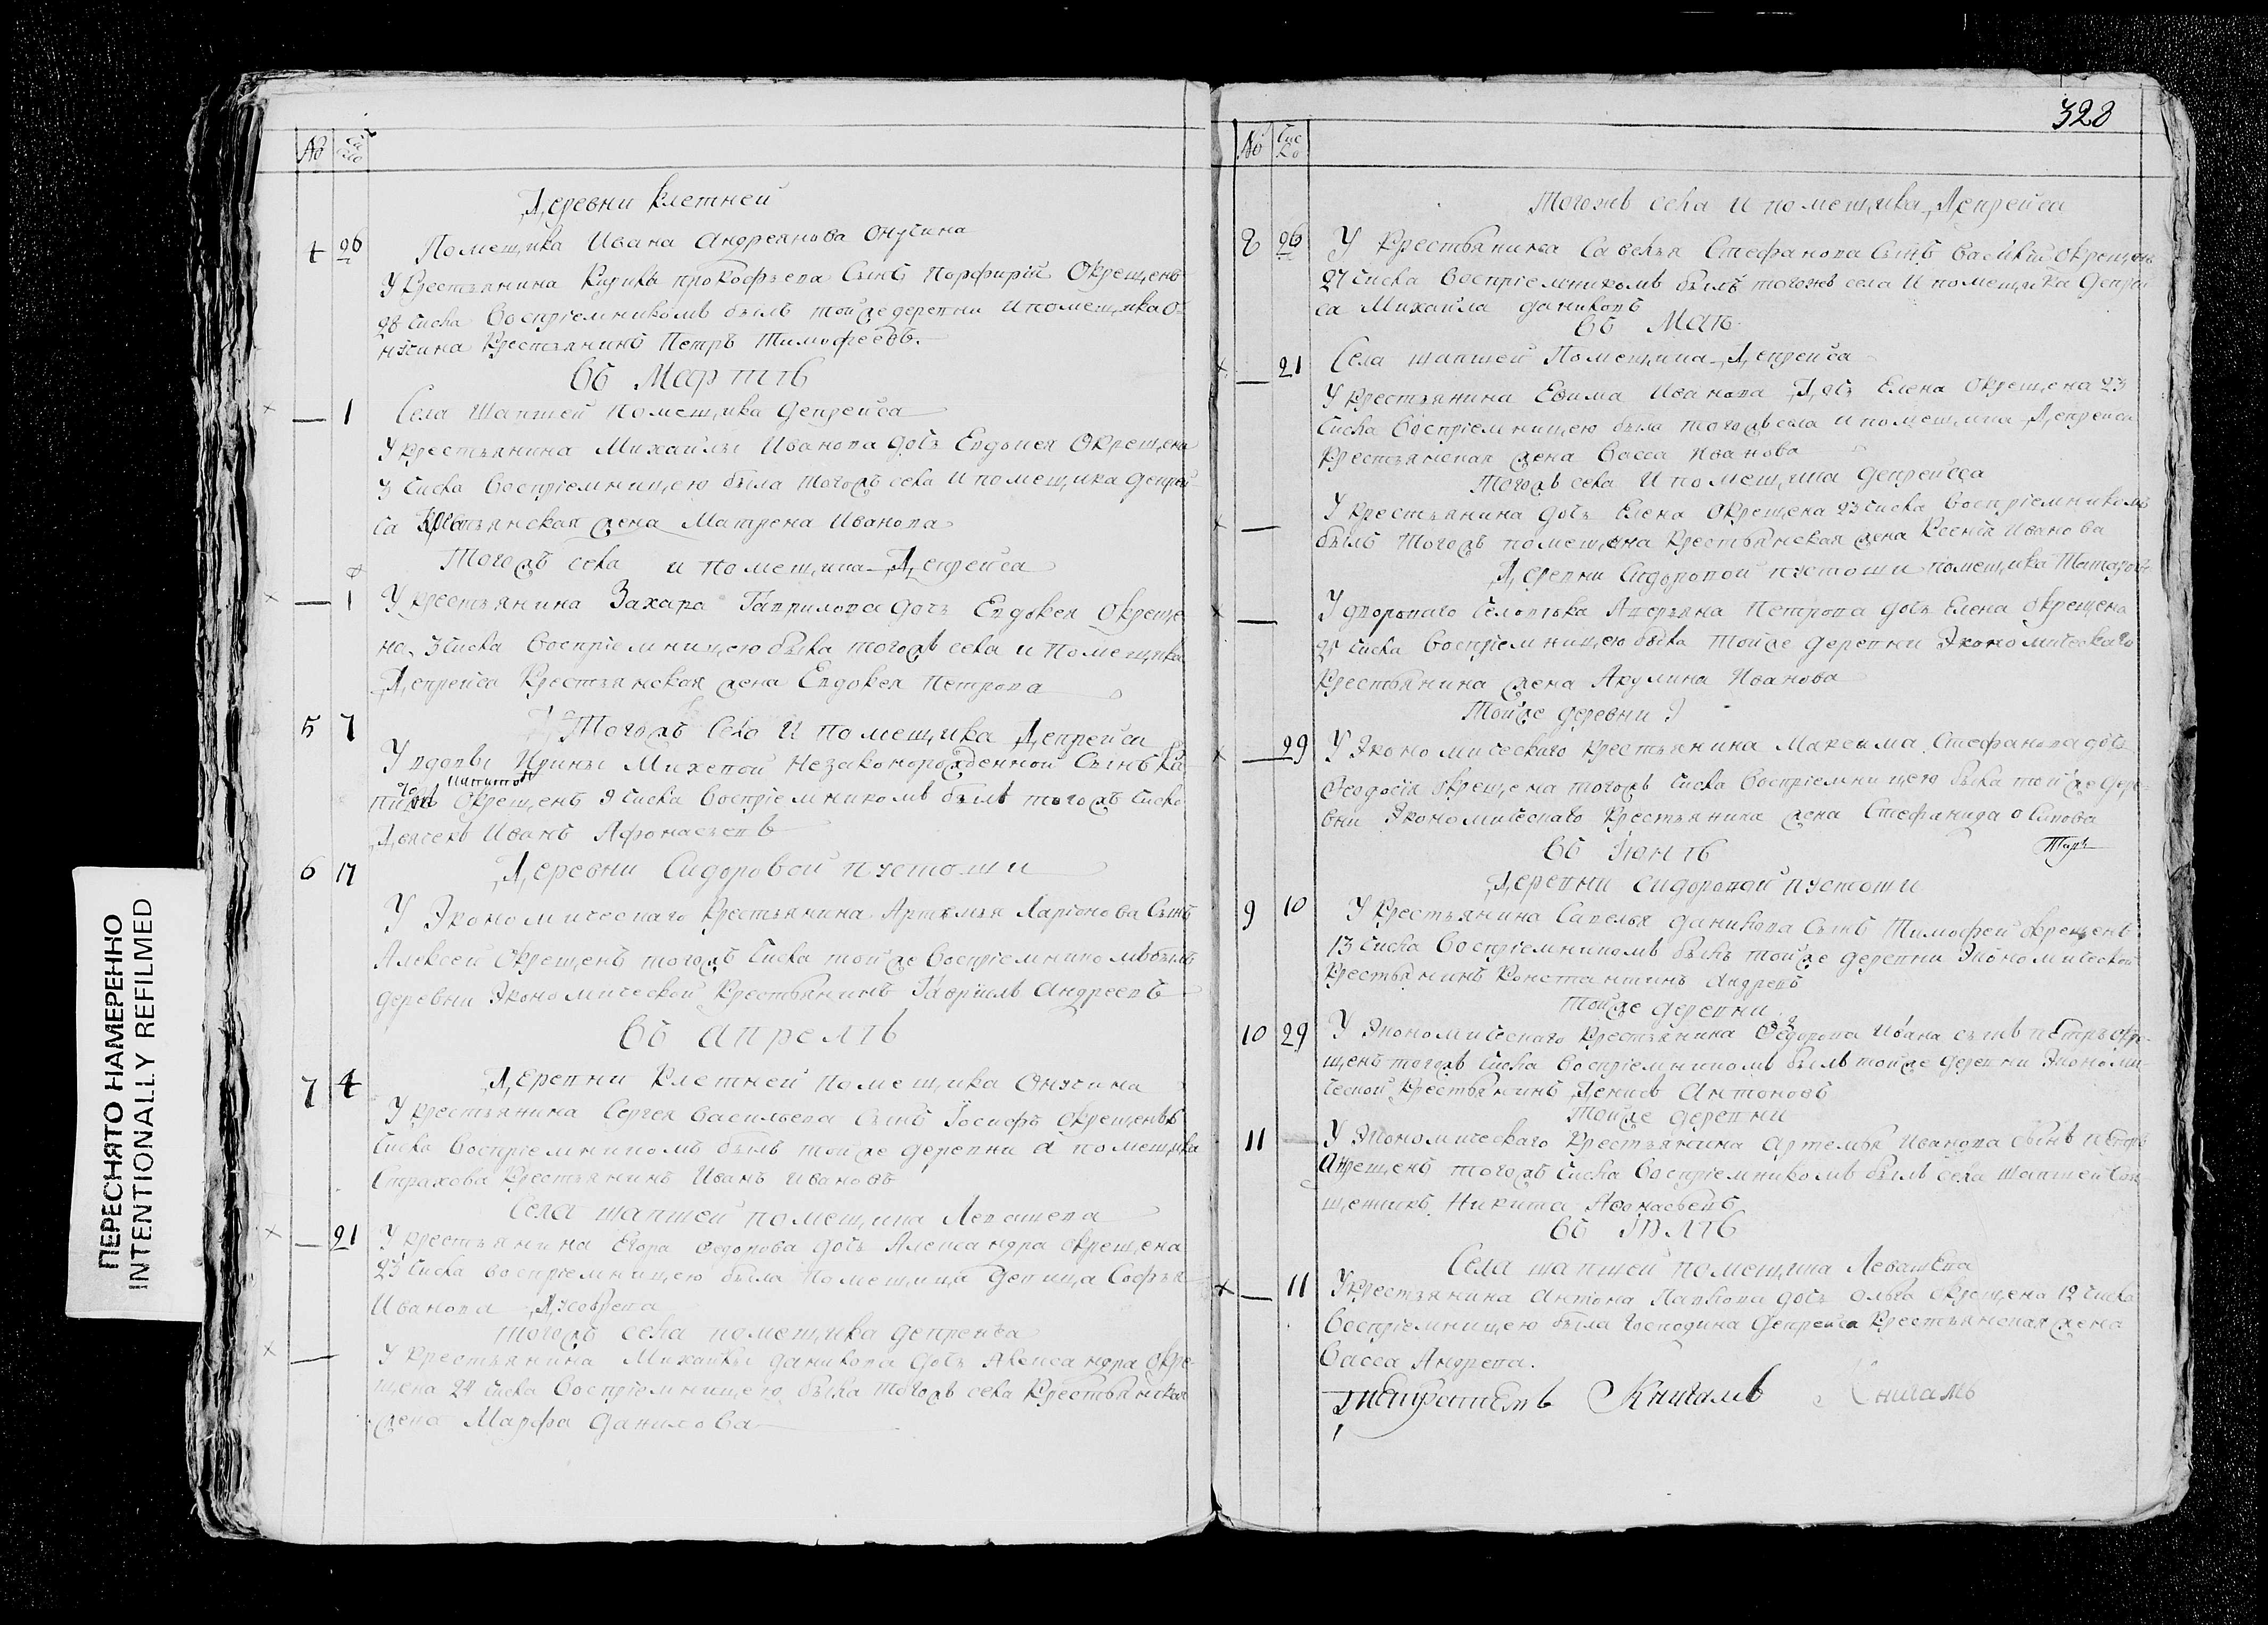 № Число
Деревни Клетней
4 26 Помещика Ивана Андреянова Онучина
У Крестьянина Кирила прокофьева Сынъ Порфирiй Окрещенъ
28 Числа Воспрiемникомъ былъ тойже деревни И помещика О-
нучина Крестьянинъ Петръ Тимофеевъ.
Въ Мартѣ
1 Села Шапшей помещика депрейса
У Крестьянина Михайлы Иванова дочь Евдокея Окрещена
3 Числа Воспрiемницею была тогожъ села И помещика депрей-
са Крестьянская жена Матрена Иванова
Тогожъ села и помещика Депрейса
1 У Крестьянина Захара Гаврилова дочь Евдокея Окреще
на 3 Числа Воспрiемницею была тогожъ села и помещика
Депрейса Крестьянская жена Евдокея Петрова
5 7 Тогожъ Села И помещика Депрейса
У вдовы Ирины Михевой Незаконорожденной Сынъ
Окрещенъ 9 Числа Воспрiемникомъ былъ тогожъ Числа
Иванъ Афонасьевъ
6 17 Деревни Сидоровой пустоши
У Экономическаго Крестьянина Артемья Ларiонова Сынъ
Алексей Окрещенъ тогожъ Числа тойже Воспрiемникомъ былъ
деревни Экономической Крестьянинъ Гавриилъ Андреевъ
Въ Апрелѣ
7 4 Деревни Клетней помещика Онучина
У Крестьянина Сергея Васильева Сынъ Iосифъ Окрещенъ 6
Числа Воспрiемникомъ былъ тойже деревни а помещика
Страхова Крестьянинъ Иванъ Ивановъ
Села шапшей помещика Левашева
21 У крестьянина Егора Федорова дочь Александра Окрещена
23 Числа воспрiемницею была Помещица девица Софья
Иванова
тогожъ села помещика депрейса
У Крестьянина Михайлы данилова дочь Александра Окре-
щена 24 Числа Воспрiемницею была тогожъ села Крестьянская
жена Марфа Данилова
328
№ Число
Тогожъ села И помещика Депрейса
8 26 У Крестьянина Савелья Стефанова Сынъ Василий Окрещенъ
27 Числа Воспрiемникомъ былъ тогожъ села И помещика депрей
са Михаила даниловъ
Въ Маѣ
21 Села шапшей Помещика Депрейса
У Крестьянина Ефима Иванова Дочь Елена Окрещена 23
Числа Воспрiемницею была тогожъ села и помещика Депрейса
Крестьянская жена Васса Иванова
Тогожъ села И помещика депрейсса
У Крестьянина дочь Елена Окрещена 23 Числа Воспрiемникомъ
былъ тогожъ помещика Крестьянская жена Ксенiя Иванова
Деревни Сидоровой пустоши помещика
У двороваго Человѣка Петрова дочь Елена Окрещена
Числа Воспрiемницею была тойже деревни Экономическаго
Крестьянина жена Акулина Иванова
Тойже деревни
29 У Экономическаго Крестьянина Максима Стефанова дочь
Феодосiя Окрещена тогожъ Числа Воспрiемницею была тойже дере-
вни Экономическаго Крестьянина жена Стефанида Осипова
Въ Iюнѣ
Деревни сидоровой пустоши
9 10 У Крестьянина Савелья данилова Сынъ Тимофей Окрещенъ
13 Числа Воспрiемникомъ былъ тойже деревни Экономической
Крестьянинъ Константинъ Андревъ
Тойже деревни
10 29 У Экономическаго Крестьянина Федорова Ивана сынъ петръ окре-
щенъ тогожъ Числа Воспрiемникомъ былъ тойже деревни Экономи-
ческой Крестьянинъ Денисъ Антоновъ
Тойже деревни
11 У Экономическаго Крестьянина Артемья Иванова сынъ петръ
Окрещенъ тогожъ Числа Воспрiемникомъ былъ села шапшей Свя
щенникъ Никита Афонасьевъ
Въ Iюлѣ
Села шапшей помещика Левашева
11 У Крестьянина Антона Павлова дочь Ольга Окрещена 12 Числа
Воспрiемницею была Господина Депрейса Крестьянская жена
Васса Андрева.
ПЕРЕСНЯТО НАМЕРЕННО
INTENTIONALLY REFILMED